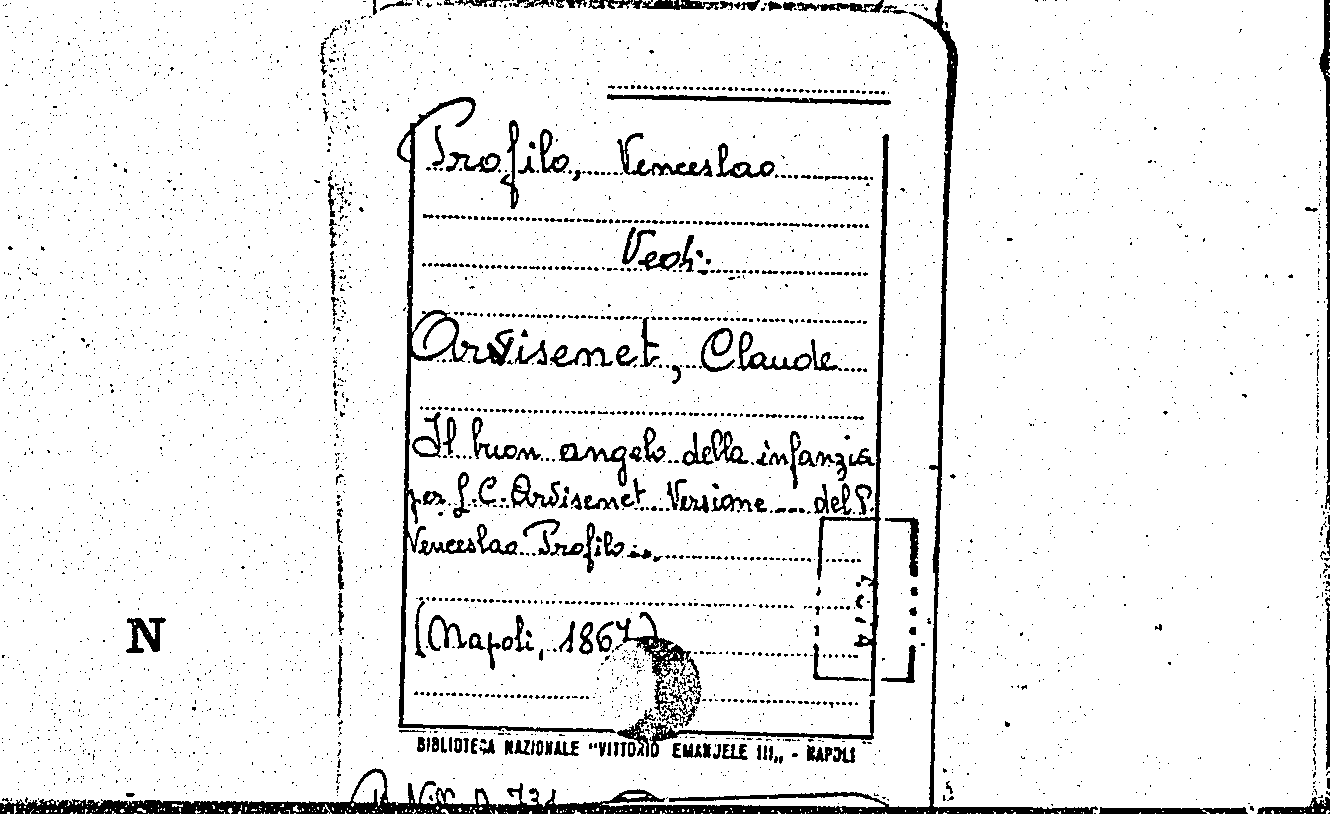 Profilo, Venceslao
Vedi:
Arvisenet, Claude
Il buon angelo della infanzia
per L. C. Arvisenet. Versione ... del P.
Venceslao Profilo...
(Napoli, 1867)
N
BIBLIOTECA NAZIONALE "VITTORIO EMANUELE III„ - NAPOLI